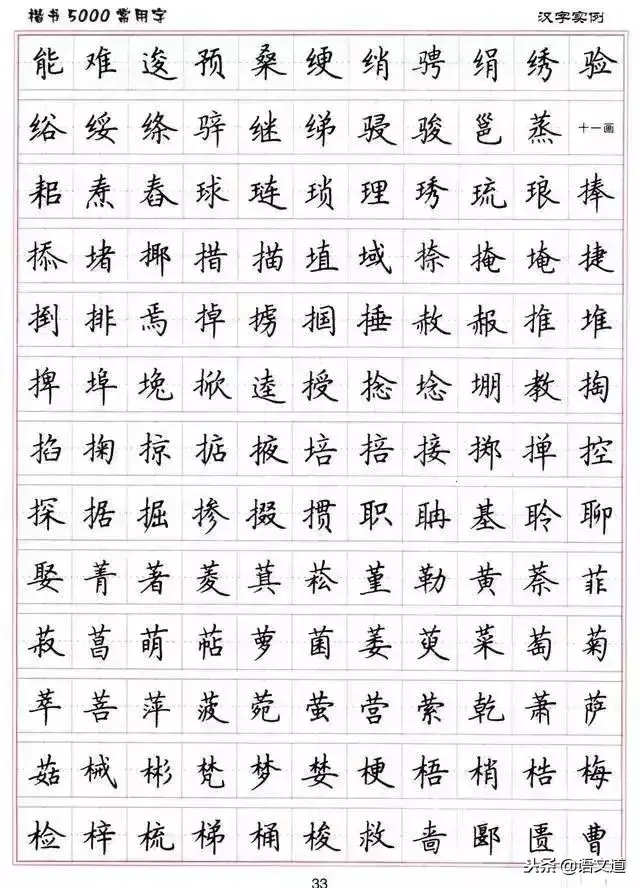 楷书5000常用字 汉字实例
能难逡预桑绠绡骋绢绣验
绤绥绦骍继绨骎骏邕蒸十一画
耜焘舂球琏琐理琇琉琅捧
掭堵揶措描埴域捺掩埯捷
捯排焉掉掳掴捶赦赧推堆
捭埠堍掀逵授捻埝堋教掏
掐掬掠掂掖培掊接掷掸控
探据掘掺掇掼职聃基聆聊
娶菁著菱萁菘堇勒黄萘菲
菽菖萌萜萝菌萎萸菜萄菊
萃菩萍菠菀萤营萦乾萧萨
菇械彬梵梦婪梗梧梢梏梅
检梓梳梯桶梭救啬郾匮曹
头条@语文道
33